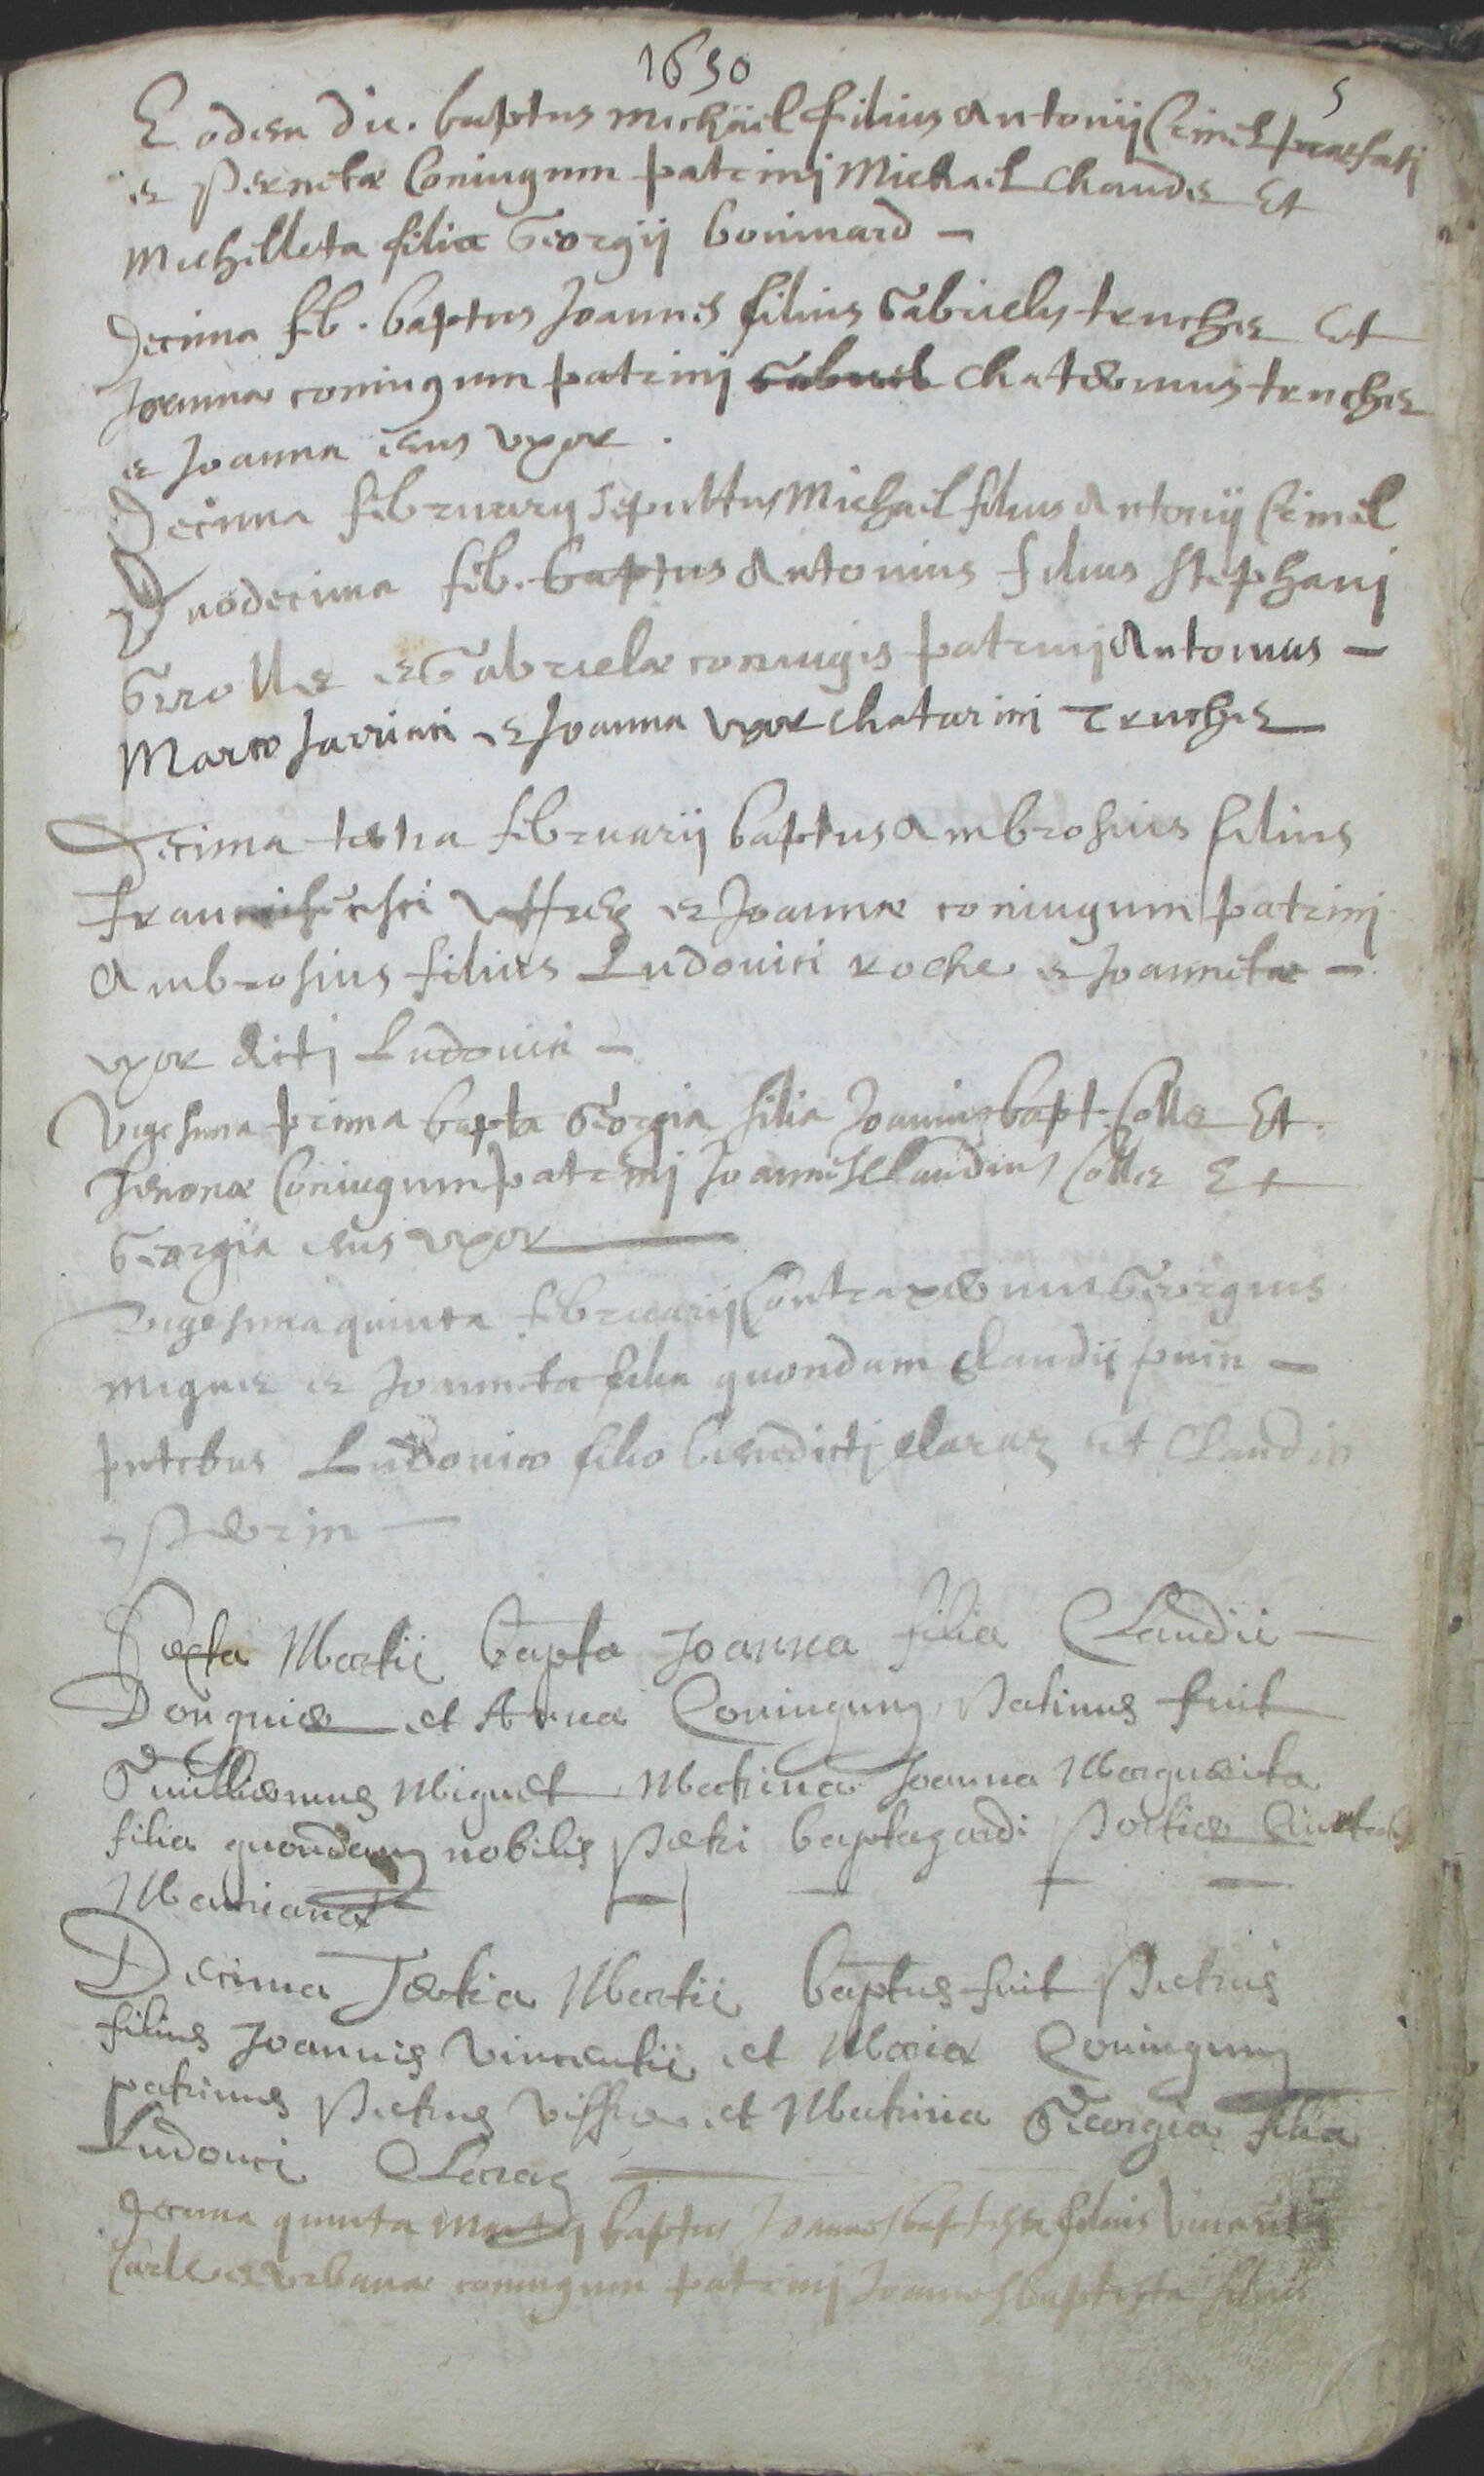 1650
5
Eodem die. baptus Michäel filius Antonij Crimel praefatj
et Pernetæ Coniugum patrinj Michael Chaude Et
Michelleta filia Georgij bonimard —
Decima feb. baptus Joannes filius Gabrielis truchet Et
Joannæ coniugum patrinj Gabriel Chaterinus truchet
et Joanna eius vxor .
Decima februarij sepultus Michael filius Antonij Crimel
Duodecima feb. baptus Antonius filius stephanj
Grolle et Gabrielæ coniugis patrinj Antonius —
Marco et Joanna vxor Chatarini Truchet
Decima tertia februarij baptus Ambrosius filius
et Joannæ coniugum patrinj
Ambrosius filius Ludouici roche et Joannetæ —
vxor dictj Ludouici —
Vigesima prima bapta Georgia filia Joannis bapt. Colle Et
Coniugum patrinj Joannes Claudius Colle Et
Georgia eius vxor
Vigesima quinta februarij Contraxerunt Georgius
miguet et Joanneta filia quondam Claudij
pntibus Ludouico filio benedictj claraz et Claudio
Perrin —
Sexta Martii bapta Joanna filia Claudii —
et Annæ Coniugum, Patrinus fuit
Guilliermus Miguet Matrina Joanna Margueita
filia quondam nobilis Petri
Decima Tertia Martii baptus fuit Petrus
filius Joannis Vincentii et Mariæ Coniugum
patrinus Petrus et Matrina Georgia filia
Ludouici Claraz
Decima quinta Martij baptus Joannes baptista filius Vincentij
Carle et vrbanæ coniugum patrinj Joannes baptista filius